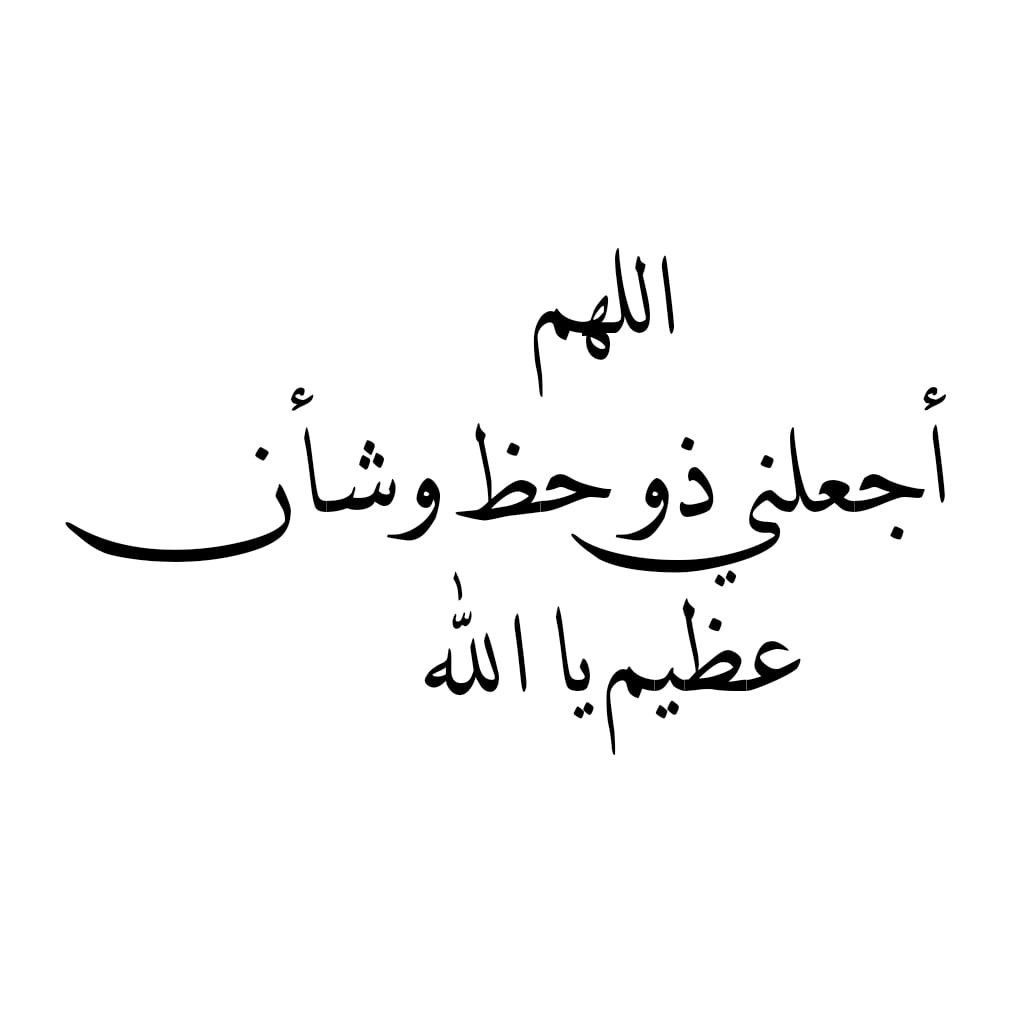 اللهم
أجعلني ذو حظ وشأن
عظيم يا الله